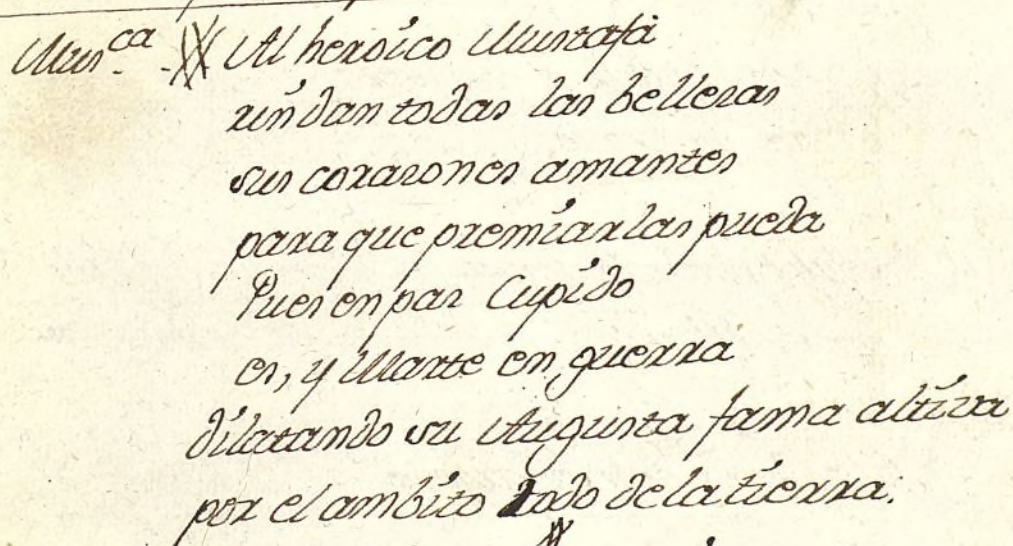 Mus.ca Al heroico Mustafá
rindan todas las bellezas
sus corazones amantes
para que premiarlas pueda
Pues en paz Cupido
es, y Marte en guerra
dilatando su Augusta fama altiva
por el ambito todo de la tierra.